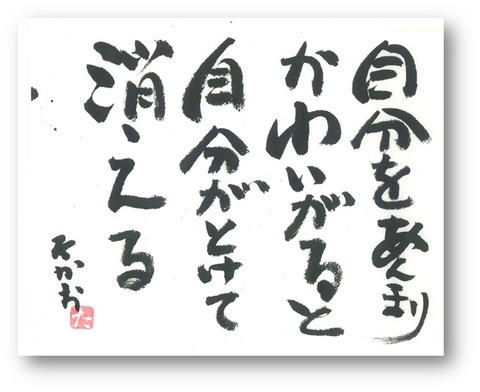 自分をあんまり
かわいがると
自分がとけて
消える
たかお
た